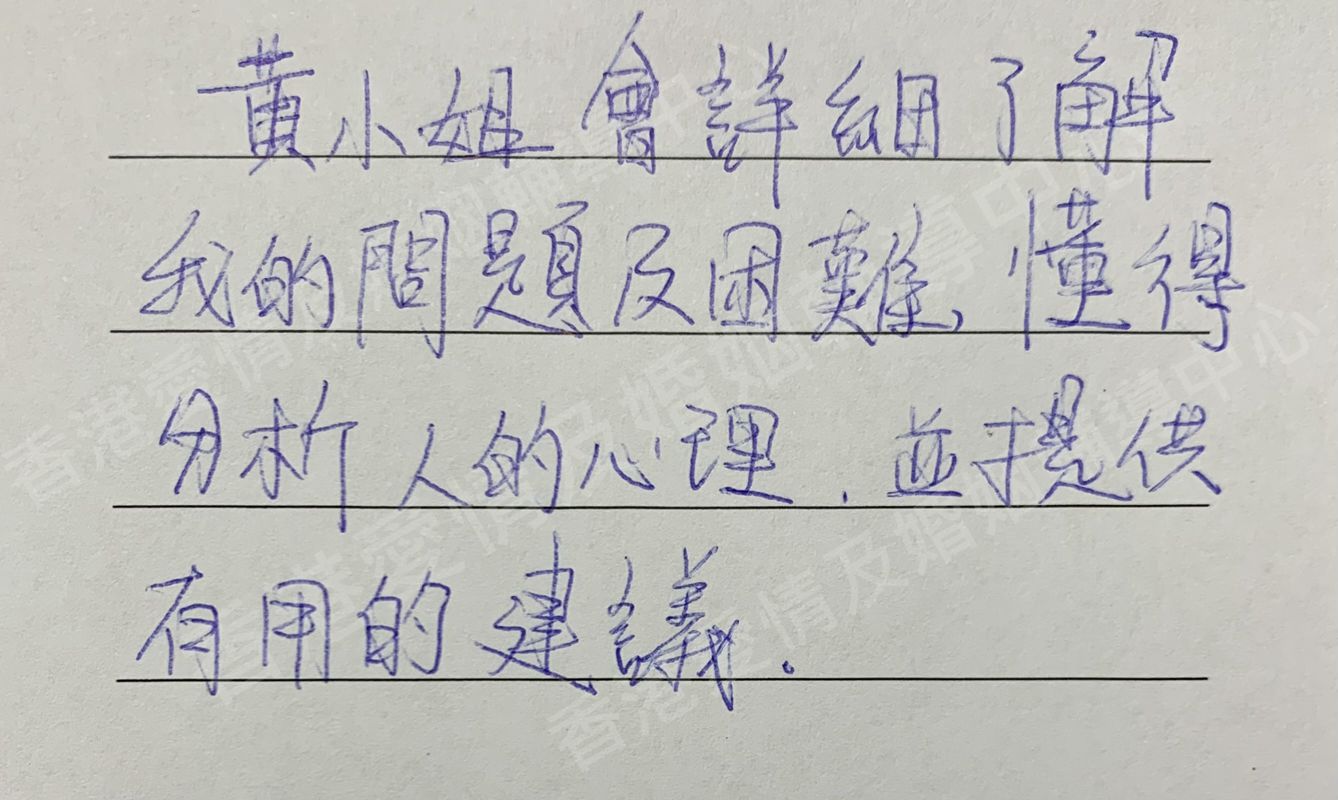 黃小姐會詳細了解
我的問題及困難，懂得
分析人的心理．並提供
有用的建議．
香港愛情及婚姻輔導中心
香港愛情及婚姻輔導中心
香港愛情及婚姻輔導中心